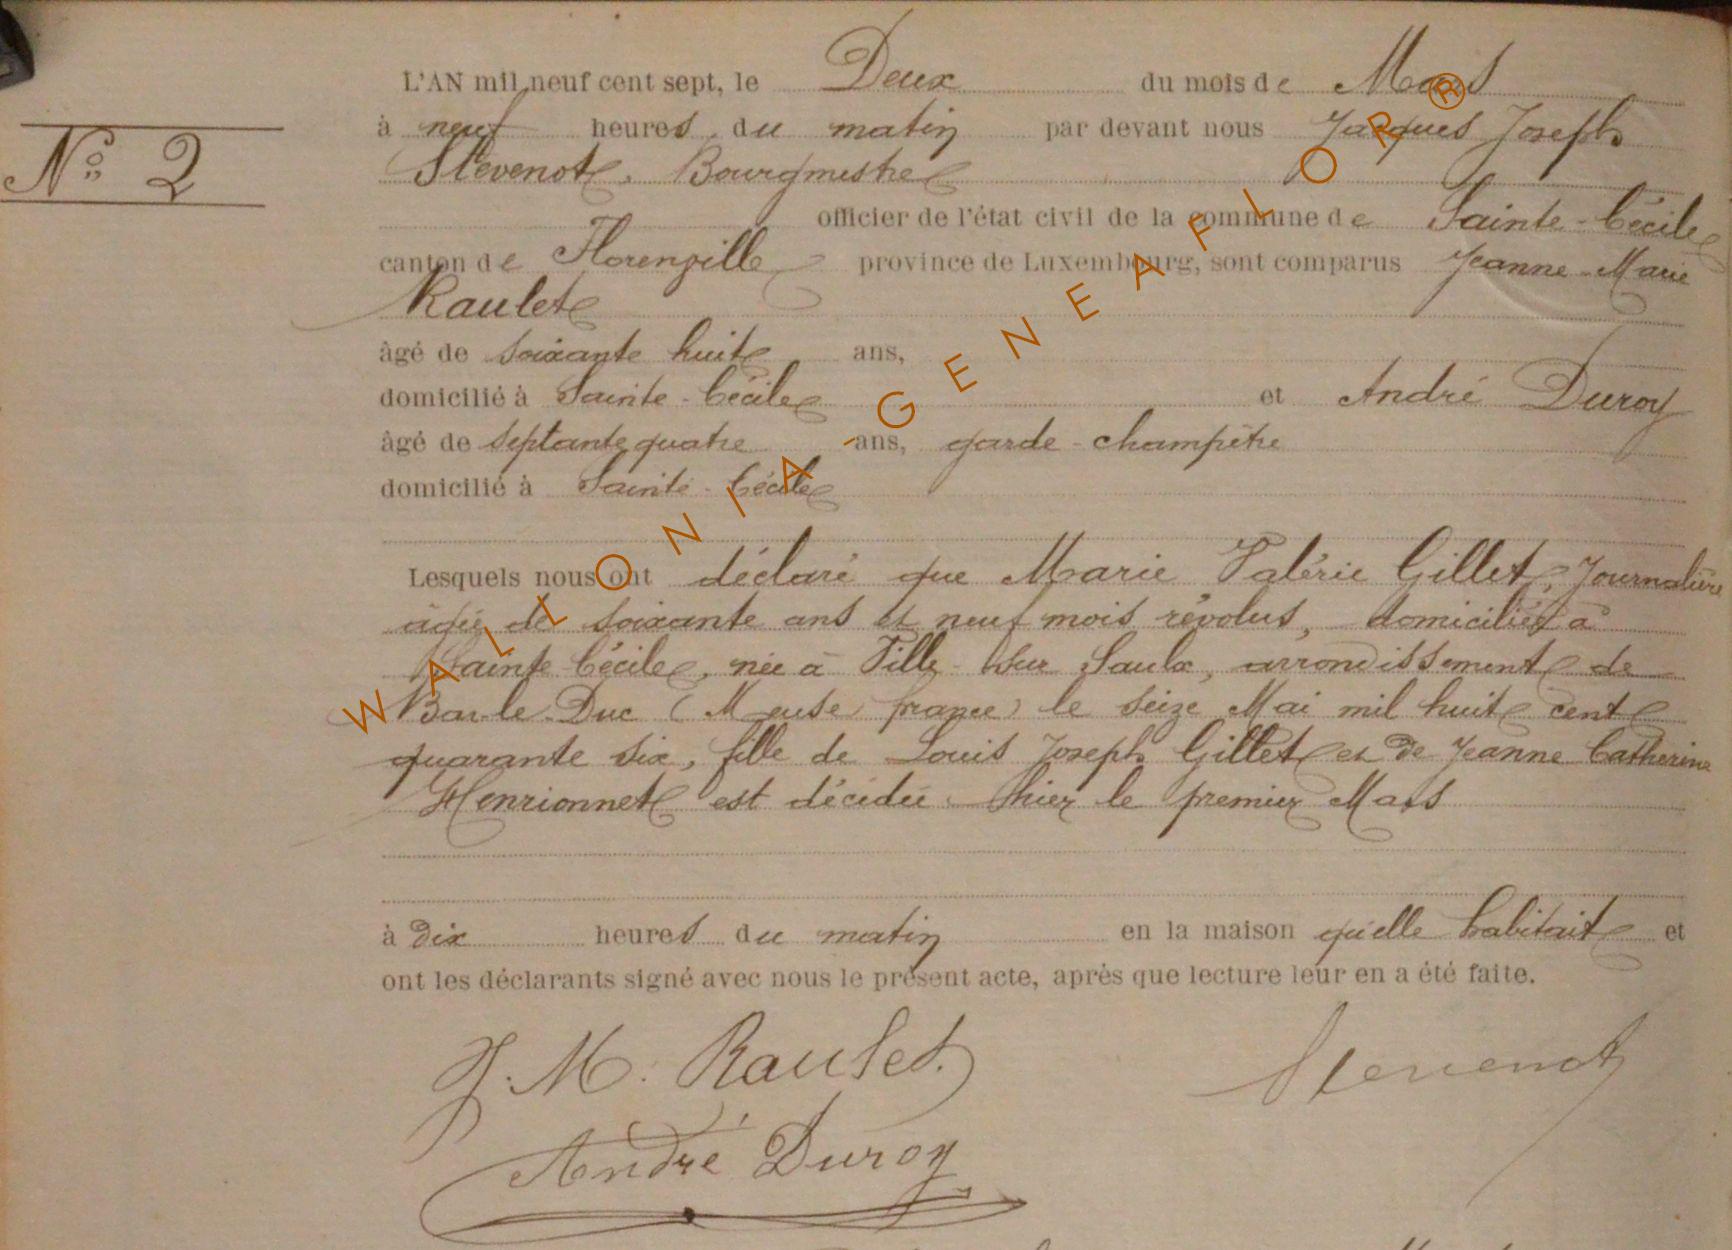 L'AN mil neuf cent sept, le Deux du mois de Mars
à neuf heures du matin par devant nous Jacques Joseph
N° 2
Stevenot, Bourgmestre
officier de l'état civil de la commune de Sainte-Cécile
canton de Florenville province de Luxembourg, sont comparus Jeanne-Marie
Raulet
âgé de soixante huit ans,
domicilié à Sainte-Cécile et André Duroy
âgé de septante quatre ans, garde-champêtre
domicilié à Sainte-Cécile
Lesquels nous ont déclaré que Marie Valérie Gillet, Journalière
âgée de soixante ans et neuf mois révolus, domiciliée à
Sainte Cécile, née à Ville-sur Saulx, arrondissement de
Bar-le-Duc (Meuse france) le seize Mai mil huit cent
quarante six, fille de Louis Joseph Gillet et de Jeanne Catherine
Henrionnet est décédée hier le premier Mars
à dix heures du matin en la maison qu'elle habitait et
ont les déclarants signé avec nous le présent acte, après que lecture leur en a été faite.
J. M. Raulet. Stevenot
André Duroy
WALLONIA-GENEAFLOR®